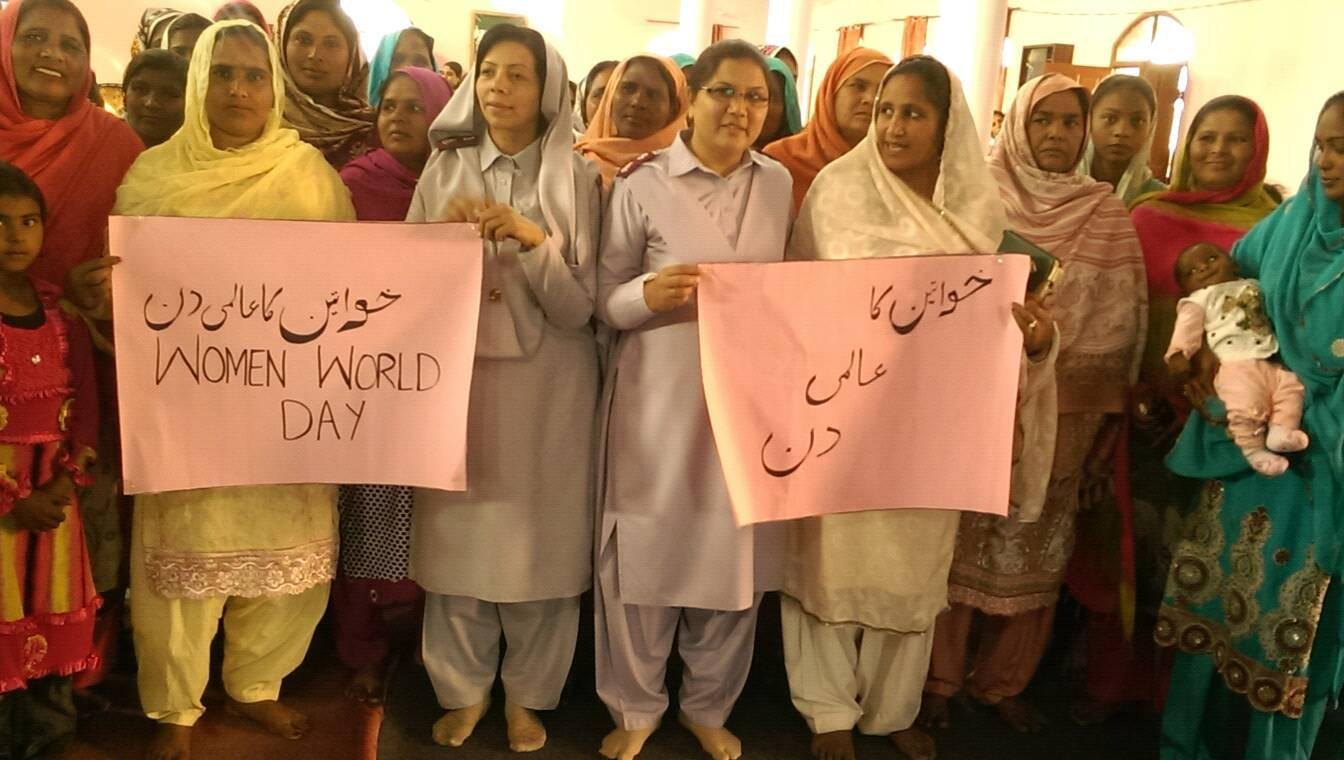 خواتین کا عالمی دن
WOMEN WORLD
DAY
خواتین کا
عالمی
دن